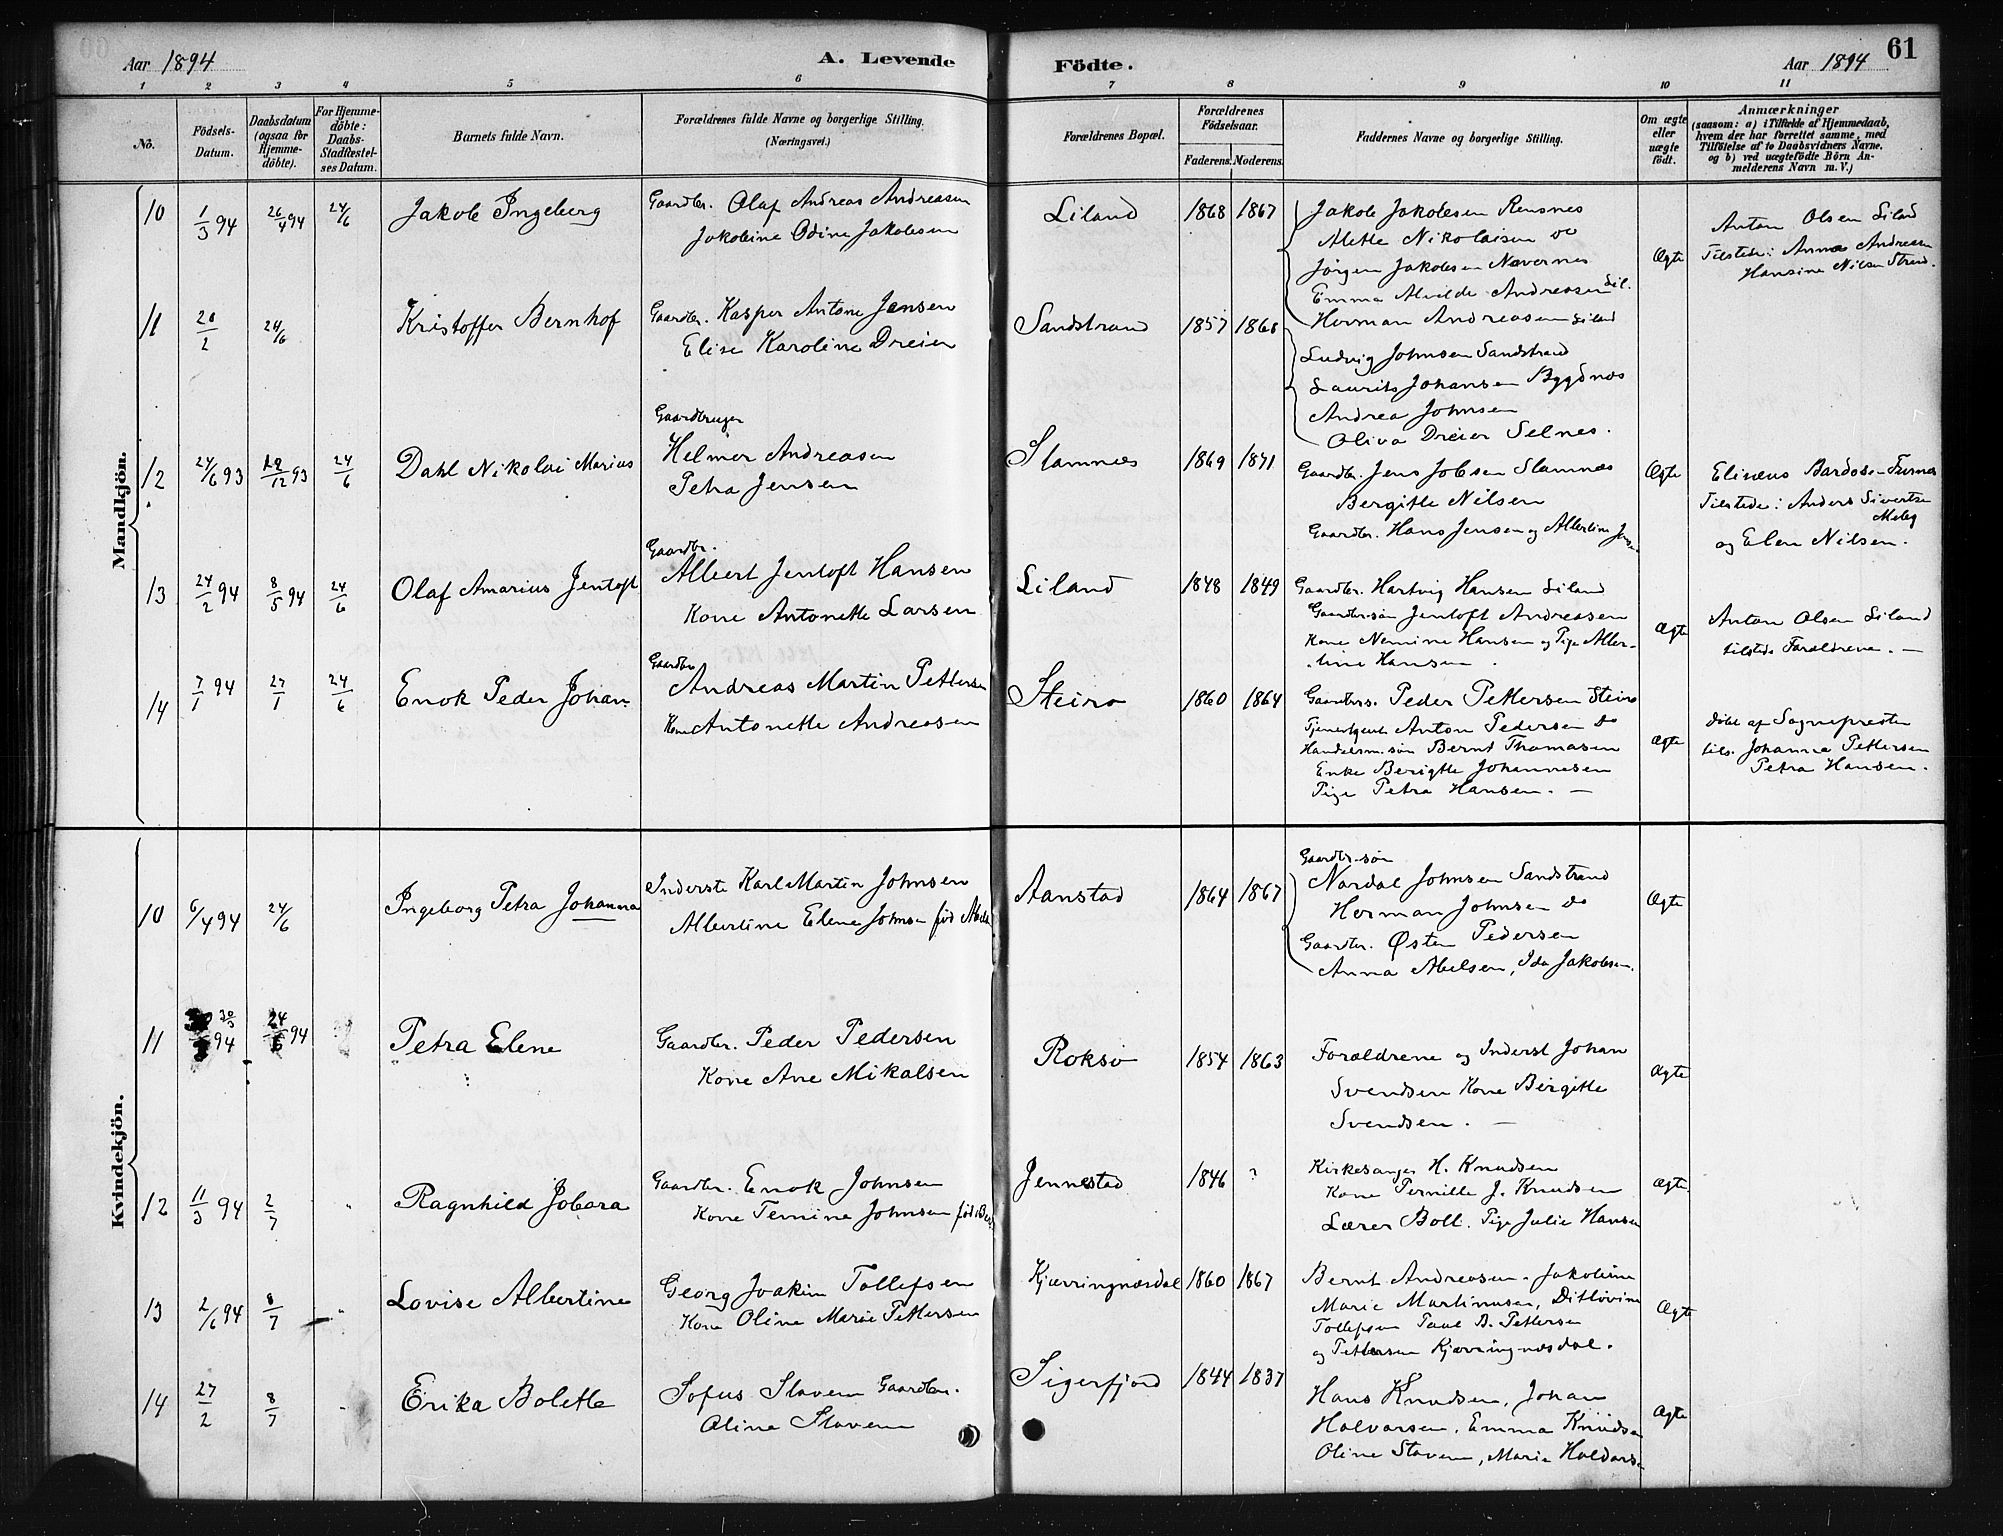 Aar 1894
A. Levende
Födte.
Aar 1894
61
1 2 3 4 5 6 7 8 9 10 11
No.
Födsels-Datum.
Daabsdatum (ogsaa for Hjemme-döbte).
For Hjemme-döbte: Daabs-Stadfæstel-ses Datum.
Barnets fulde Navn.
Forældrenes fulde Navne og borgerlige Stilling. (Næringsvei.)
Forældrenes Bopæl.
Forældrenes Födselsaar.
Faderens. Moderens.
Faddernes Navne og borgerlige Stilling.
Om ægte eller uægte födt.
Anmærkninger
(saasom: a) i Tilfælde af Hjemmedaab,
hvem der har forrettet samme, med
Tilföielse af to Daabsvidners Navne,
og b) ved uægtefödte Börn An-
melderens Navn m. V.)
Mandkjön.
10 1/3 94 26/4 94 24/6 Jakob Ingeberg
Gaardbr. Olaf Andreas Andreasen
Jakobine Odine Jakobsen
Liland 1868 1867
Jakob Jakobsen Rensnes
Alette Nikolaisen
Jørgen Jakobsen Nævernes
Emma Alvilde Andreasen Lil.
Herman Andreasen Liland
Ægte
Anton Olsen Liland
Tilstede: Anna Andreasen
Hansine Nilsen Strand.
11 20/2 24/6 Kristoffer Bernhof
Gaardbr. Kasper Antone Jensen
Elise Karoline Dreier
Sandstrand 1857 1868
Ludvig Johnsen Sandstrand
Laurits Johansen Bygdnes
Andrea Johnsen
Oliva Dreier Selnes.
12 24/6 93 12/12 93 24/6 Dahl Nikolai Marius
Gaardbruger
Helmer Andreasen
Petra Jensen
Slamnes 1869 1871
Gaardbr. Jens Jobsen Slamnæs
Bergitte Nilsen
Gaardbr. Hans Jensen og Albertine
Ægte
Elinæus Bardos
Tilstede: Anders Sivertsen
og Elen Nilsen.
13 24/2 94 8/5 94 24/6 Olaf Amarius Jentoft
Gaardbr.
Albert Jentoft Hansen
Kone Antonette Larsen
Liland 1848 1849
Gaardbr. Hartvig Hansen Liland
Gaardbr.søn Jentoft Andreasen
Kone Nemine Hansen og Pige Alber-
tine Hansen.
Ægte
Anton Olsen Liland
tilstede Forældrene. —
14 7/1 94 27/1 24/6 Enok Peder Johan
Gaardbr.
Andreas Martin Pettersen
Kone Antonette Andreasen
Steiro 1860 1864
Gaardbr. Peder Pettersen Steiro
Tjenestgut Anton Pedersen Do
Handelsm. søn Bernt Thomasen
Enke Berigtte Johannesen
Pige Petra Hansen. —
Ægte
døbt af Sognepresten
tils. Johanna Pettersen
Petra Hansen.
Kvindekjön.
10 6/4 94 24/6 Ingeborg Petra Johanna
Inderste Karl Martin Johnsen
Albertine Elene Johnsen fød
Aanstad 1864 1867
Gaardbr.søn
Nordal Johnsen Sandstrand
Herman Johnsen Do
Gaardbr. Østen Pedersen
Anna Abelsen, Ida Jakobsen.
Ægte
11 30/3 94 24/6 94 Petra Elene
Gaardbr. Peder Pedersen
Kone Ane Mikalsen
Roksø 1854 1863
Forældrene og Inderst Johan
Svendsen Kone Bergitte
Svendsen. —
Ægte
12 11/3 94 2/7 Ragnhild Jobara
Gaardbr. Enok Johnsen
Kone Temine Johnsen fød
Jennestad 1846 ?
Kirkesanger H. Knudsen
Kone Pernille J. Knudsen
Lærer Boll. Pige Julie Hansen
Ægte
13 2/6 94 8/7 Lovise Albertine
Georg Joakim Tollefsen
Kone Oline Marie Pettersen
Kjærringnæsdal 1860 1867
Bernt Andreasen. Jakobine
Marie Martinusen, Ditløvine
Tollefsen Paul B. Pettersen
og Pettersen Kjærringnæsdal.
Ægte
14 27/2 8/7 Erika Bolette
Sofus Slaven Gaardbr.
Oline Slaven
Sigerfjord 1844 1837
Hans Knudsen, Johan
Halvorsen, Emma Knudsen
Oline Slaven, Marie
Ægte